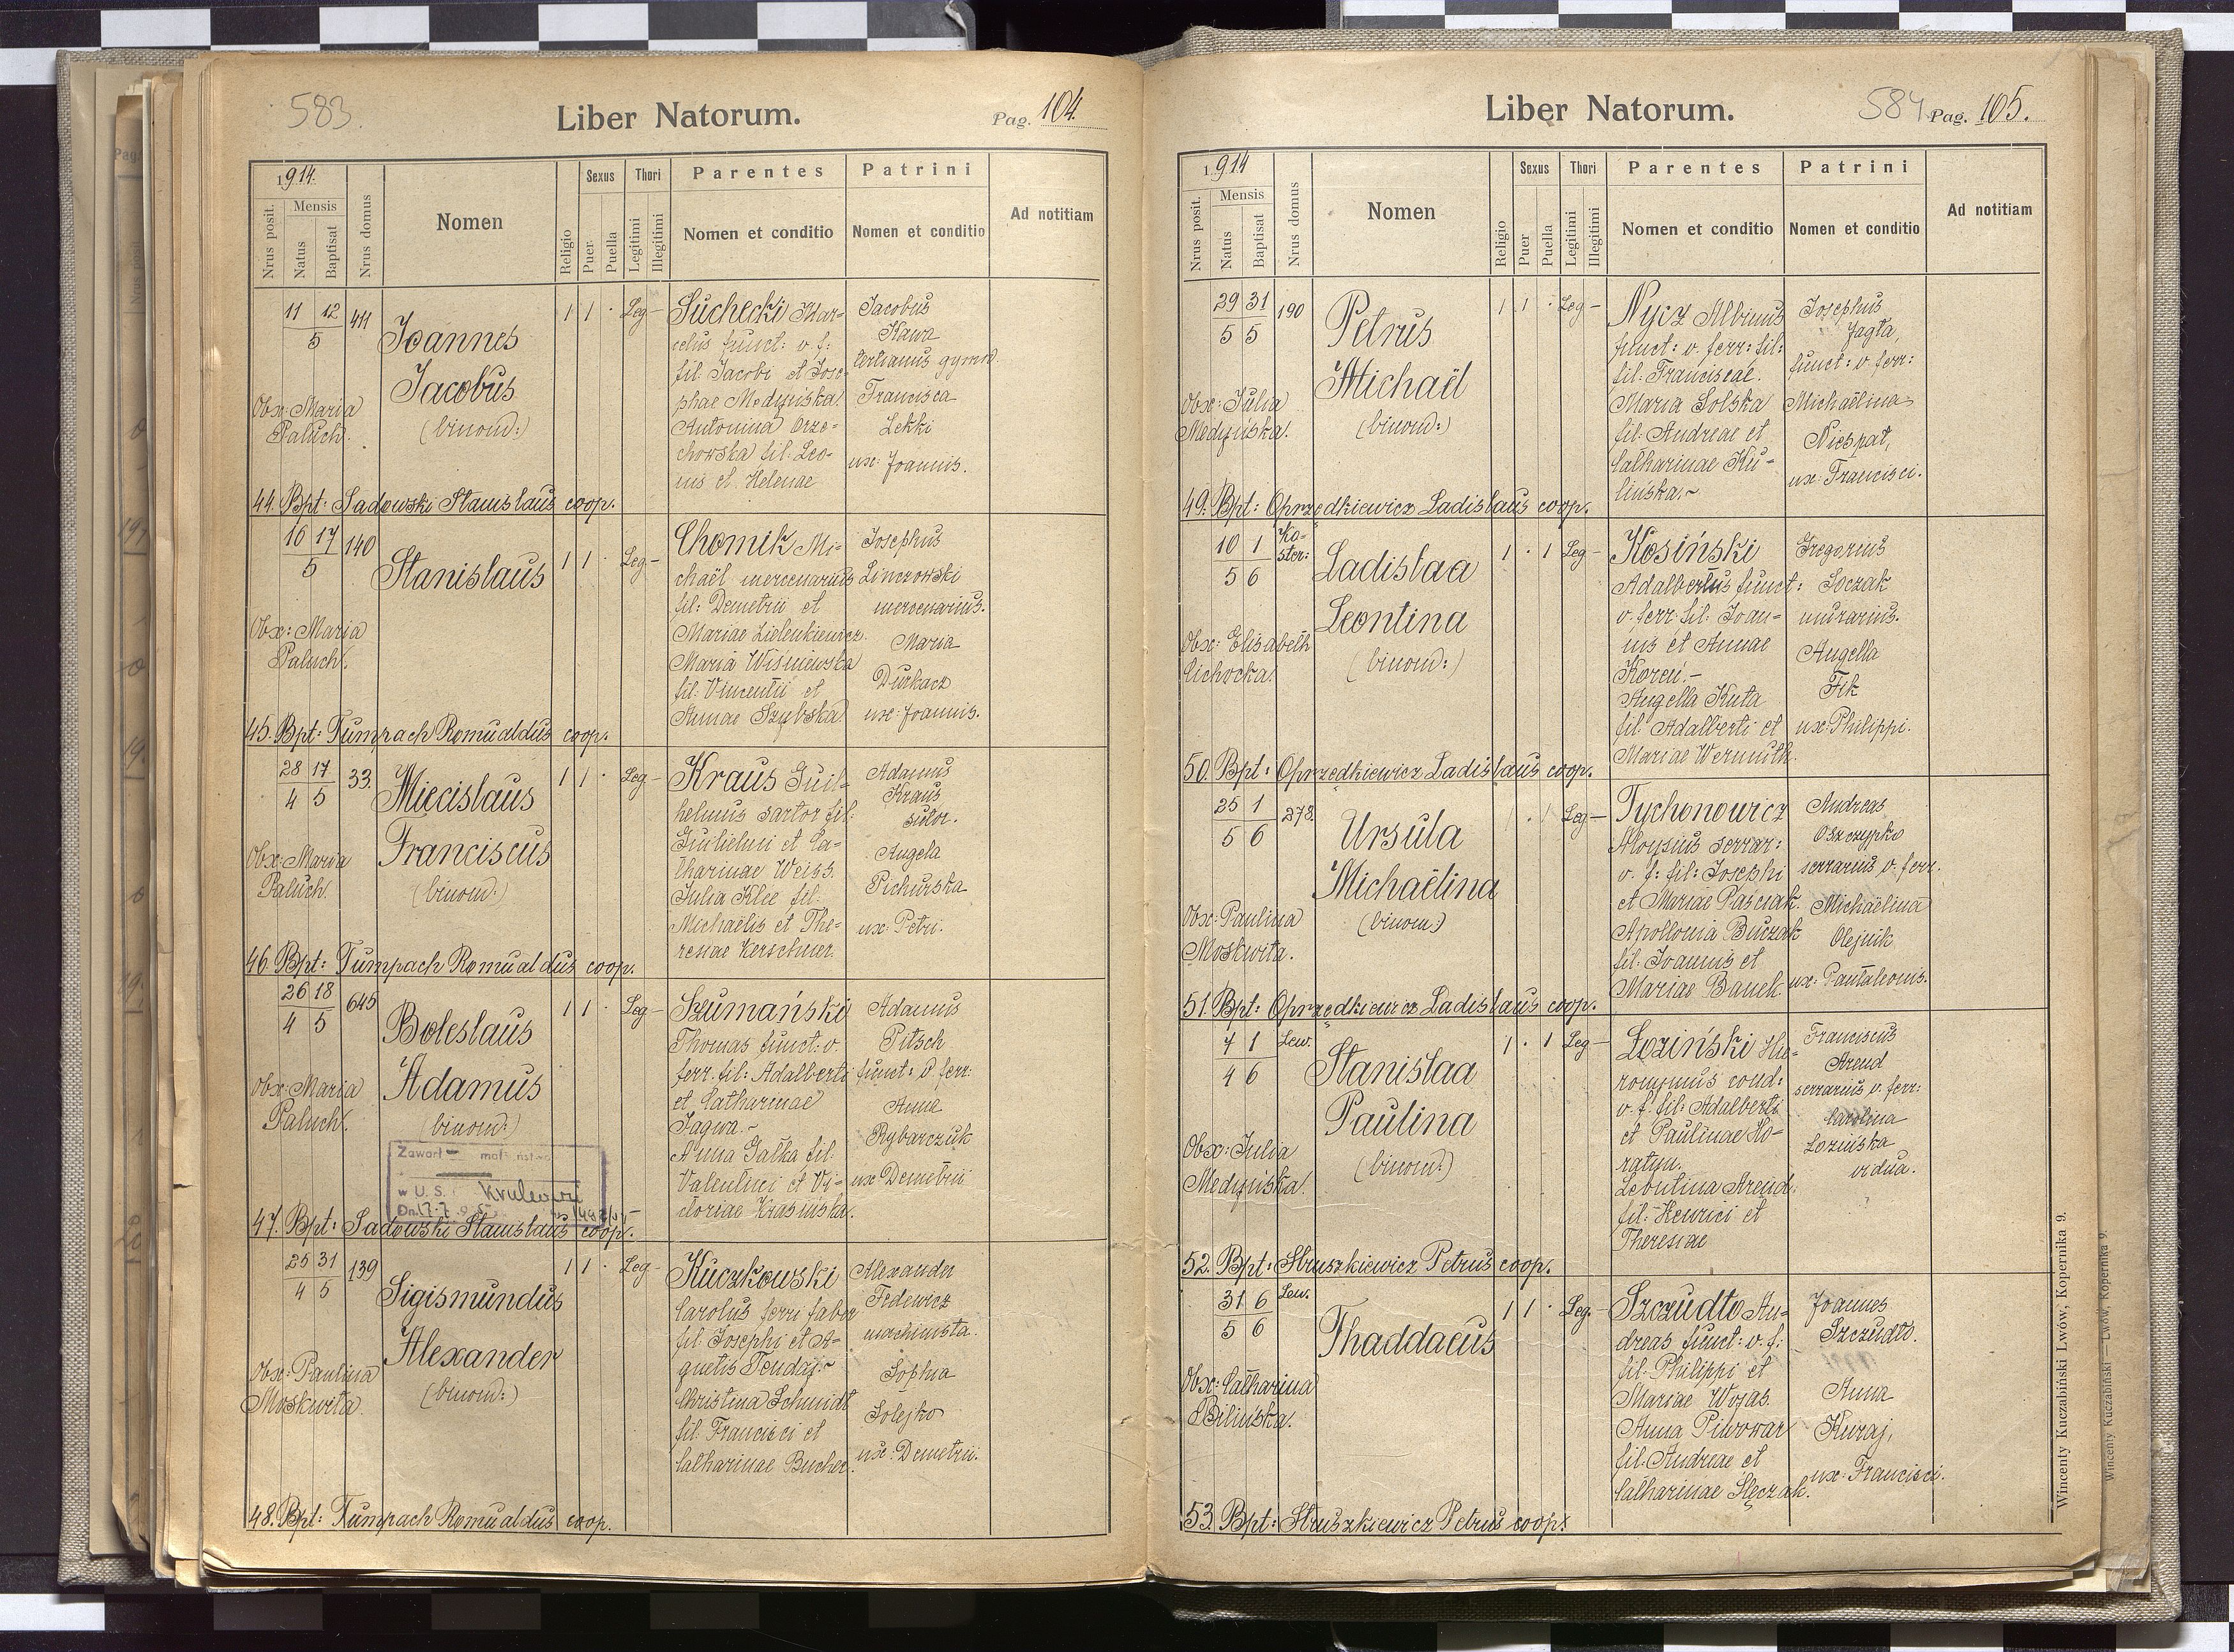 583.
Liber Natorum.
Pag. 104.
1914.
Nrus posit.
Mensis
Natus
Baptisat
Nrus domus
Nomen
Religio
Sexus
Puer
Puella
Thori
Legitimi
Illegitimi
Parentes
Nomen et conditio
Patrini
Nomen et conditio
Ad notitiam
11 12
5
411
Joannes
Jacobus
(binom:)
1 1 · Leg –
Suchecki Mar-
celus funct: v. f:
fil. Jacobi et Jose-
phae Medyńska.
Antonina Orze-
chowska fil. Leo-
nis et Helenae
Jacobus
Kawa
tertianus gymn.
Francisca
Lekki
ux: Joannis.
Obx: Maria
Paluch.
44. Bpt: Sadowski Stanislaus coop.
16 17
5
140
Stanislaus
1 1 · Leg –
Chomik Mi-
chaël mercenarius
fil: Demetrii et
Mariae Zielenkiewicz.
Maria Wiśniewska
fil: Vincentii et
Annae Szubska.
Josephus
Linczowski
mercenarius.
Maria
Durkacz
ux: Joannis.
Obx: Maria
Paluch.
45. Bpt: Tumpach Romualdus coop.
28 17
4 5
33.
Miecislaus
Franciscus
(binom:)
1 1 · Leg –
Kraus Guil-
helmus sartor fil:
Guilielmi et Ca-
tharinae Weiss.
Julia Klee fil.
Michaëlis et The-
resiae Kerschner.
Adamus
Kraus
sutor.
Angela
Pichurska
ux: Petri.
Obx: Maria
Paluch.
46. Bpt: Tumpach Romualdus coop.
26 18
4 5
645
Boleslaus
Adamus
(binom:)
1 1 · Leg –
Szumański
Thomas funct: v.
ferr. fil: Adalberti
et Catharinae
Jagwa. ~
Anna Gałka fil:
Valentini et Vi-
ctoriae Krasińska.
Adamus
Pitsch
funct: v ferr:
Anna
Rybarczuk
ux Demetrii
Obx: Maria
Paluch.
Zawarł
w U. S.
Dn. 17.7
47. Bpt: Sadowski Stanislaus coop.
25 31
4 5
139
Sigismundus
Alexander
(binom:)
1 1 · Leg –
Kuczkowski
Carolus ferri faber
fil. Josephi et A-
gnetis Tendzi ~
Christina Schmidt
fil. Francisci et
Catharinae Bucher.
Alexander
Fedewicz
machinista.
Sophia
Solejko
ux: Demetrii.
Obx: Paulina
Moskwita.
48. Bpt: Tumpach Romualdus coop.
Liber Natorum.
584
Pag. 105.
1914
Nrus posit.
Mensis
Natus
Baptisat
Nrus domus
Nomen
Religio
Sexus
Puer
Puella
Thori
Legitimi
Illegitimi
Parentes
Nomen et conditio
Patrini
Nomen et conditio
Ad notitiam
29 31
5 5
190
Petrus
Michaël
(binom:)
1 1 · Leg –
Nycz Albinus
funct: v. ferr: fil:
fil: Franciscae.
Maria Solska
fil. Andreae et
Catharinae Ku-
lińska. ~
Josephus
Jagła,
funct: v. ferr:
Michaëlina
Niespał,
ux: Francisci.
Obx: Julia
Medyńska.
49. Bpt: Oprzędkiewicz Ladislaus coop.
10 1
5 6
Ko-
ster:
Ladislaa
Leontina
(binom:)
1 · 1 Leg –
Kosiński
Adalbertus funct:
v. ferr fil. Joan-
nis et Annae
Koreń. –
Angella Kuta
fil. Adalberti et
Mariae Wermuth.
Gregorius
Soczak
murarius.
Angella
Fik
ux: Philippi.
Obx: Elisabeth
Cichocka.
50. Bpt: Oprzędkiewicz Ladislaus coop.
25 1
5 6
273.
Ursula
Michaëlina
(binom:)
1 · 1 Leg –
Tychonowicz
Aloysius serrar:
v. f: fil: Josephi
et Mariae Paściak.
Apollonia Buczak
fil. Joannis et
Mariae Banek.
Andreas
Oszczypko
serrarius v. ferr.
Michaëlina
Olejnik
ux: Pantaleonis.
Obx: Paulina
Moskwita.
51. Bpt: Oprzędkiewicz Ladislaus coop.
7 1
4 6
Lew.
Stanislaa
Paulina
(binom:)
1 · 1 Leg –
Łoziński Hie-
ronymus cond:
v. f. fil: Adalberti
et Paulinae Ho-
ratyn.
Leontina Arend.
fil: Henrici et
Theresiae
Franciscus
Arend
serrarius v. ferr:
Carolina
Łozińska
vidua.
Obx: Julia
Medyńska.
52. Bpt: Struszkiewicz Petrus coop.
31 6
5 6
Lew.
Thaddaeus
1 1 · Leg. –
Szczudło An-
dreas funct: v. f:
fil: Philippi et
Mariae Wojas.
Anna Piwowar
fil. Andreae et
Catharinae Ślęczak.
Joannes
Szczudło.
Anna
Kuraj,
ux: Francisci.
Obx: Catharina
Bilińska.
53. Bpt: Struszkiewicz Petrus coop.
Wincenty Kuczabiński Lwów, Kopernika 9.
Wincenty Kuczabiński — Lwów, Kopernika 9.